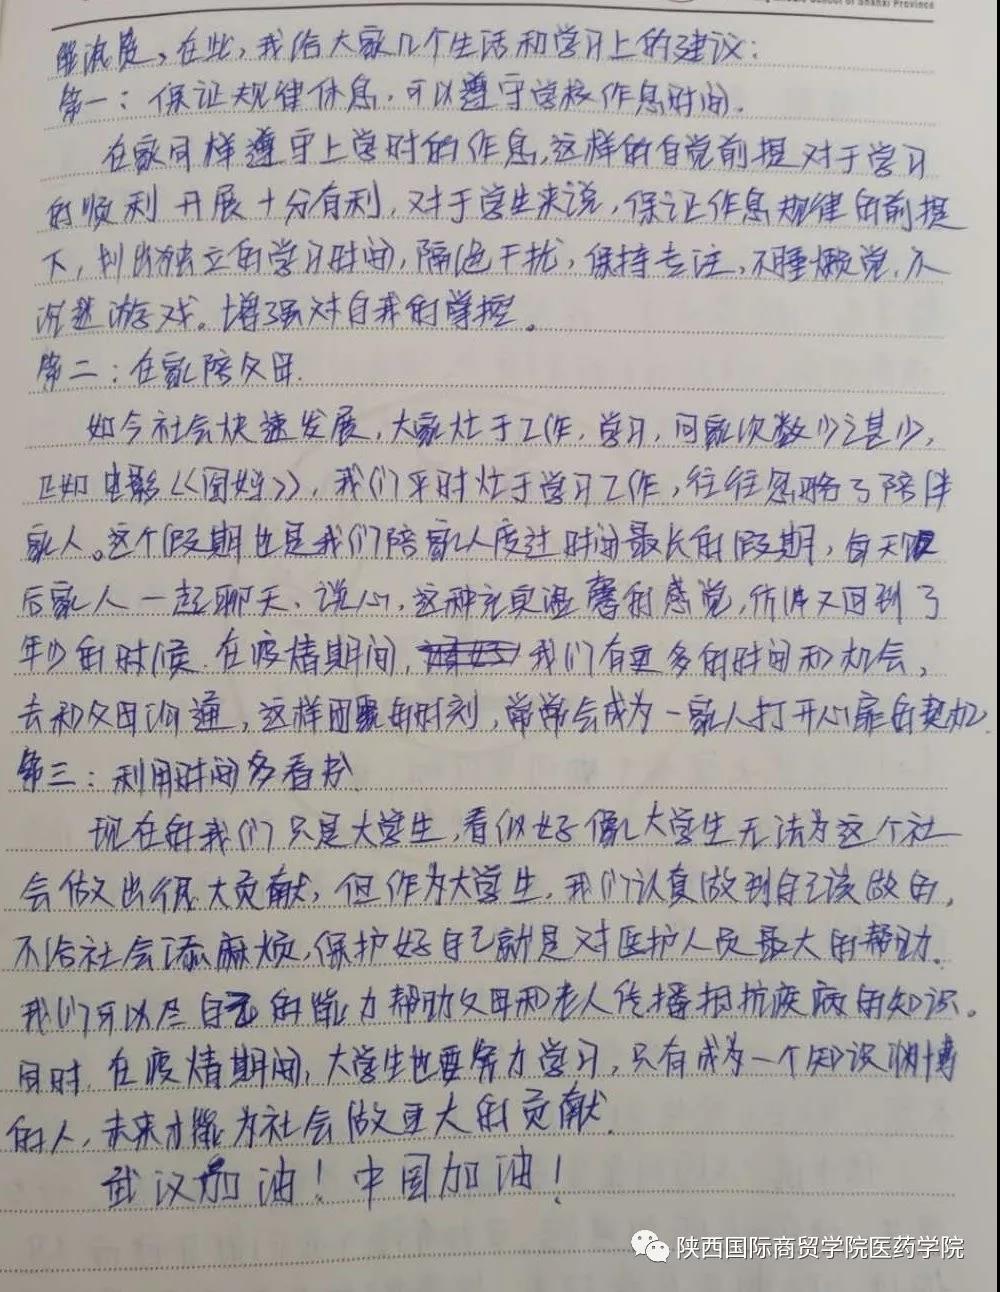 School of Shanxi Province
在此,我给大家几个生活和学习上的建议:
第一:保证规律休息,可以遵守学校作息时间.
在家同样遵守上学时的作息,这样的自觉前提对于学习
的顺利开展十分有利,对于学生来说,保证作息规律的前提
下,划出独立的学习时间,隔绝干扰,保持专注,不睡懒觉,不
沉迷游戏。增强对自我的掌控。
第二:在家陪父母.
如今社会快速发展,大家忙于工作,学习,回家次数少之甚少,
正如电影<<囧妈>>,我们平时忙于学习工作,往往忽略了陪伴
家人。这个假期也是我们陪家人度过时间最长的假期,每天饭
后家人一起聊天、谈心,这种充实温馨的感觉,仿佛又回到了
年少的时候.在疫情期间,我们有更多的时间和机会,
去和父母沟通,这样团聚的时刻,常常会成为一家人打开心扉的契机.
第三:利用时间多看书
现在的我们只是大学生,看似好像大学生无法为这个社
会做出很大贡献,但作为大学生,我们认真做到自己该做的,
不给社会添麻烦,保护好自己就是对医护人员最大的帮助.
我们可以尽自己的能力帮助父母和老人传播抵抗疾病的知识。
同时.在疫情期间,大学生也要努力学习,只有成为一个知识渊博
的人,未来才能为社会做更大的贡献.
武汉加油!中国加油!
陕西国际商贸学院医药学院